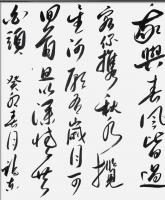 我與春風皆過
客你攜秋水攬
星河願有歲月可
回首且以深情共
白頭 癸卯春月